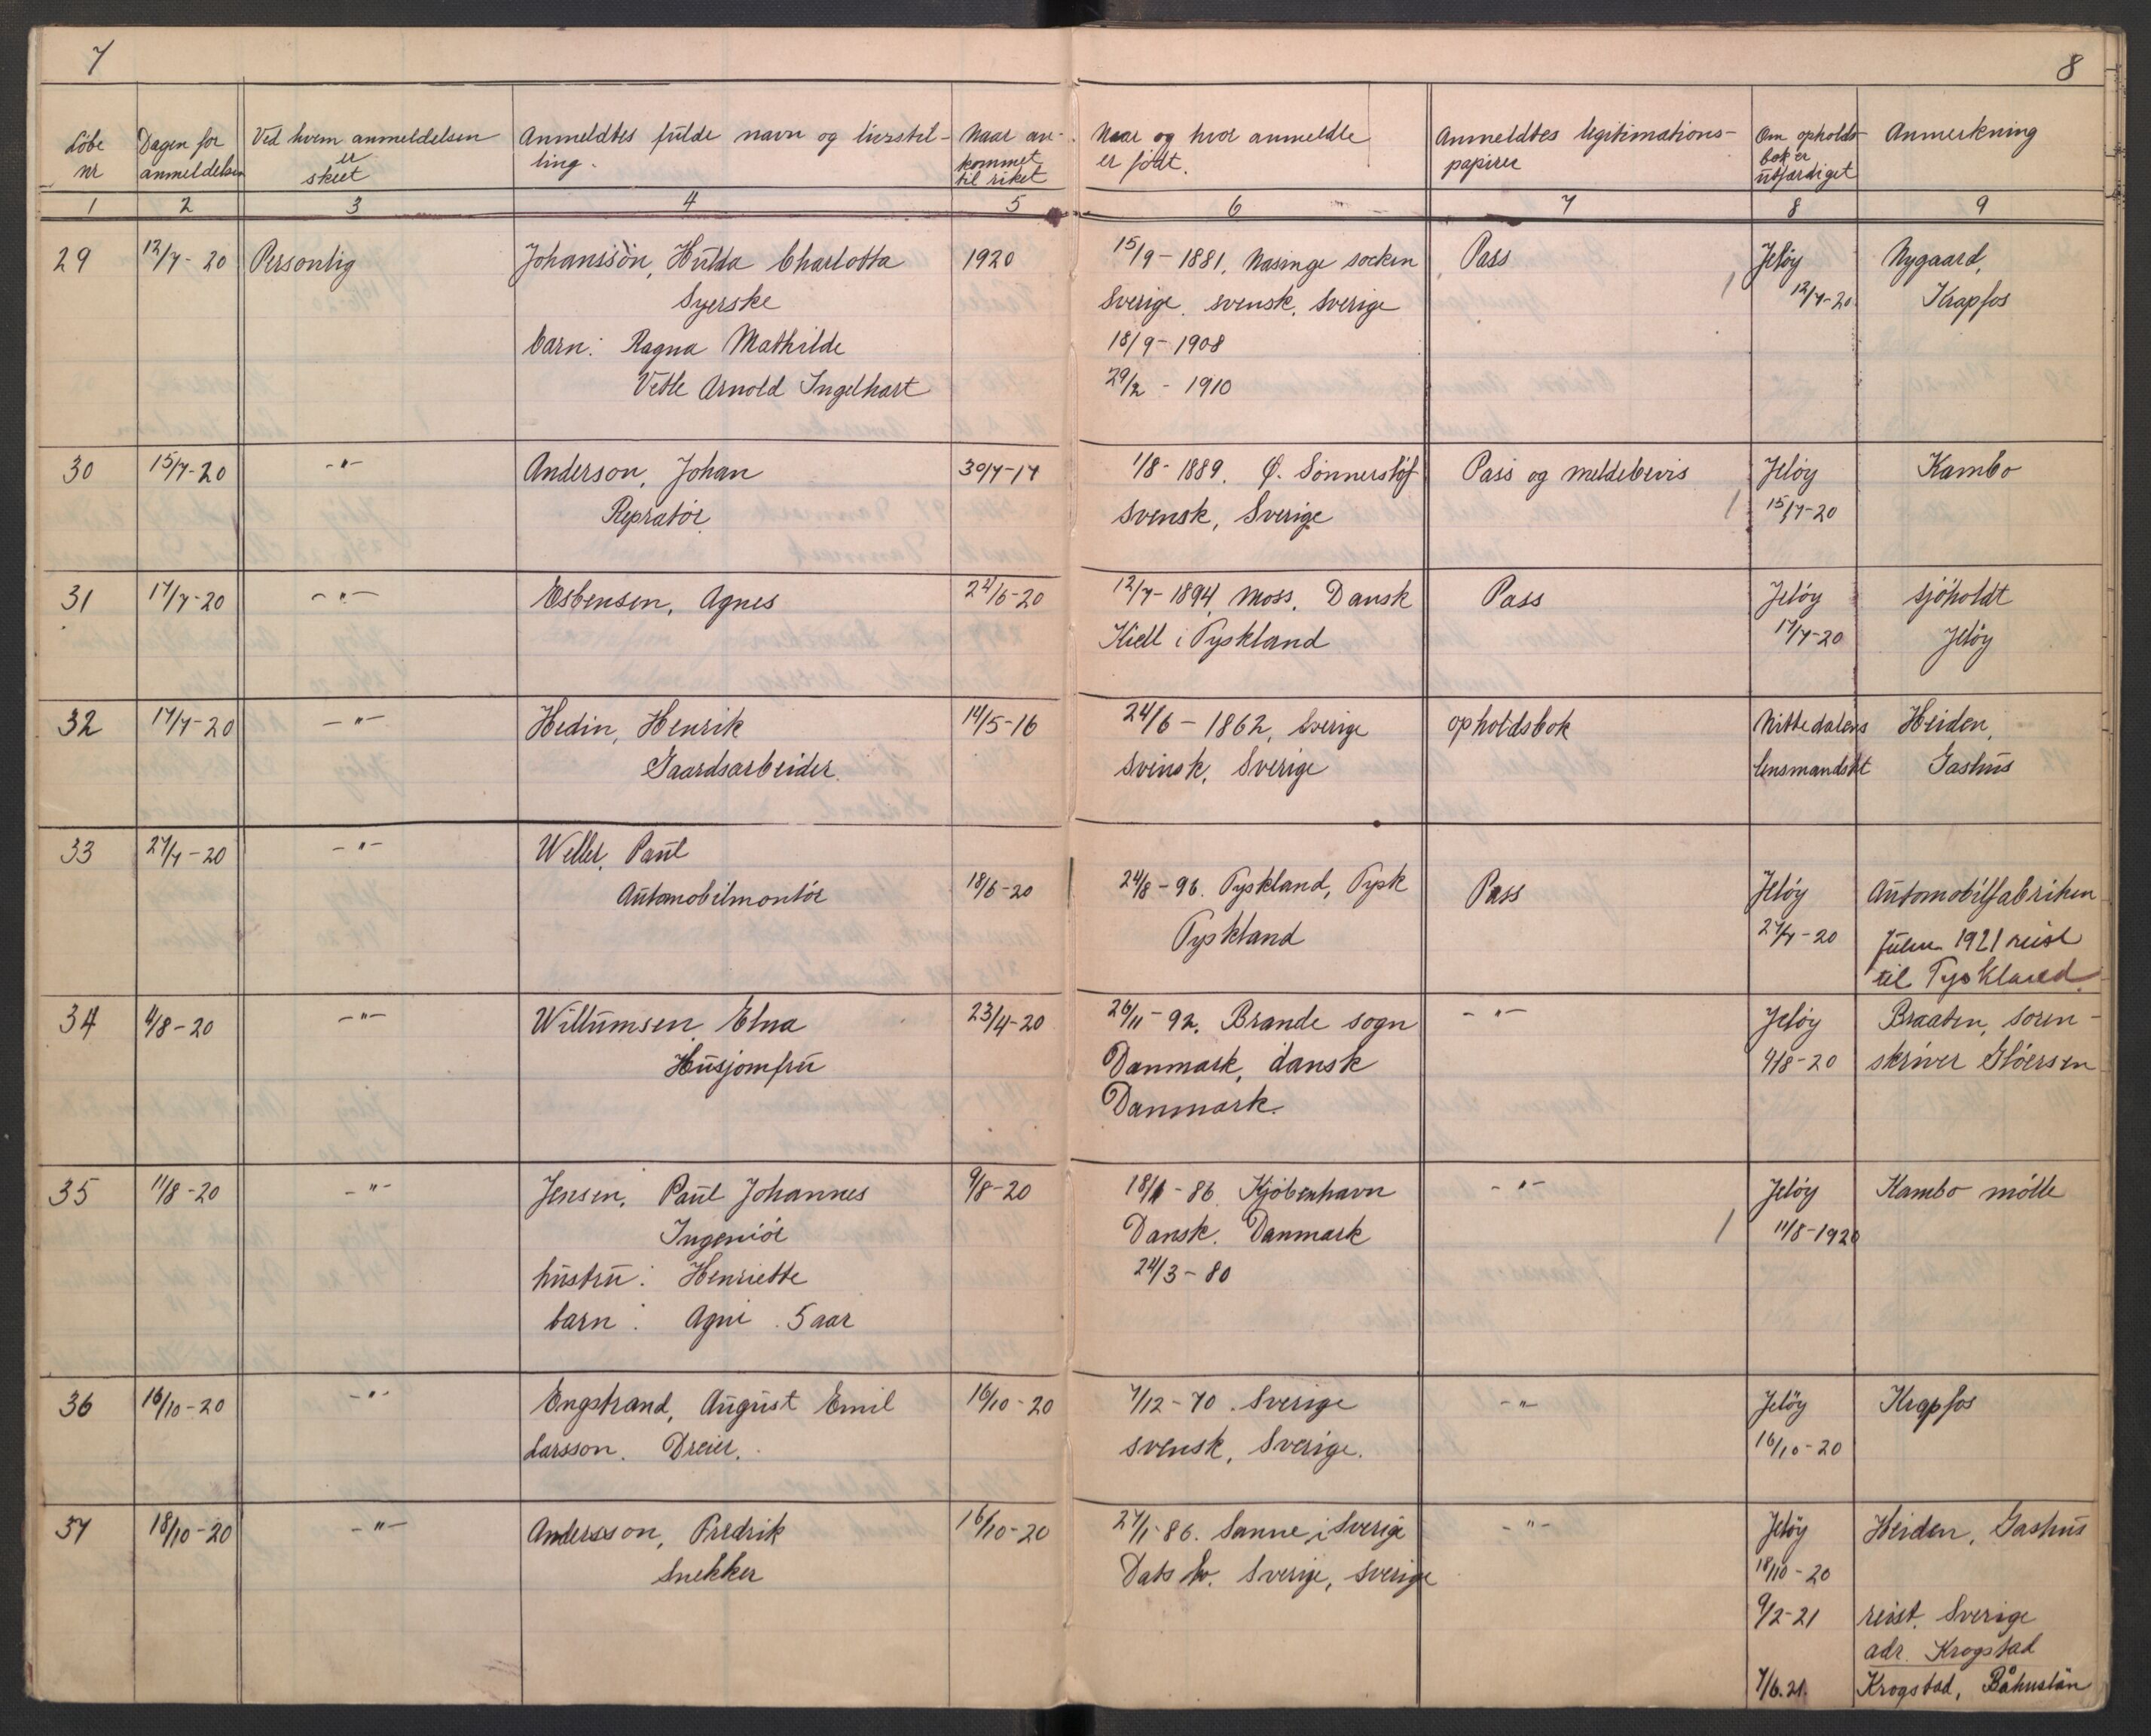 7
8
Løbe nr
Dagen for anmeldelsen
Ved hvem anmeldelsen er skeet
Anmeldtes fulde navn og livsstilling.
Naar ankommet til riket
Naar og hvor anmeldte er født.
Anmeldtes legitimationspapirer
Om opholdsbok er utfærdiget
Anmerkning
1 2 3 4 5 6 7 8 9
29 12/7-20 Personlig Johanssön, Hulda Charlotta 1920 15/9-1881, Nasinge socken Pass Jeløy Nygaard,
Syerske Sverige. svensk, Sverige 12/7-20 Krapfos
barn: Ragna Mathilde 18/9-1908
Vetle Arnold Ingelhart 29/2-1910
30 15/7-20 -"- Anderson, Johan 30/7-17 1/8-1889. Ø. Sönnerslöf Pass og meldebevis Jeløy Kambo
Repratør svensk, Sverige 15/7-20
31 17/7-20 -"- Esbensen, Agnes 24/6-20 12/7-1894, Moss, Dansk Pass Jeløy Sjøholdt
Kiell i Tyskland 17/7-20 Jeløy
32 17/7-20 -"- Hedin, Henrik 14/5-16 24/6-1862, Sverige opholdsbok Nittedalens Heiden,
Gaardsarbeider. Svensk, Sverige lensmandskt Gashus
33 27/7-20 -"- Weller, Paul
Automobilmontør 18/6-20 24/8-96. Tyskland, Tysk Pass Jeløy Automobilfabriken
Tyskland 27/7-20 Julen 1921 reist
til Tyskland.
34 4/8-20 -"- Willumsen, Elna 23/4-20 26/11-92. Brande sogn -"- Jeløy Braaten, soren-
Husjomfru Danmark, dansk 4/8-20 skriver Gløersen
Danmark.
35 11/8-20 -"- Jensen, Paul Johannes 9/8-20 18/1-86. Kjøbenhavn -"- Jeløy Kambo mølle
Ingeniør Dansk. Danmark 11/8-1920
hustru: Henriette 24/3-80
barn: Agni. 5 aar
36 16/10-20 -"- Engstrand, August Emil 16/10-20 7/12-70. Sverige -"- Jeløy Krapfos
Larsson. Dreier. svensk, Sverige. 16/10-20
37 18/10-20 -"- Andersson, Fredrik 16/10-20 27/1-86. Sanne i Sverige -"- Jeløy Heiden, Gashus
Snekker Sverige, Sverige 18/10-20
9/2-21 reist. Sverige
adr. Krogstad
7/6.21. Krogstad, Båhuslän